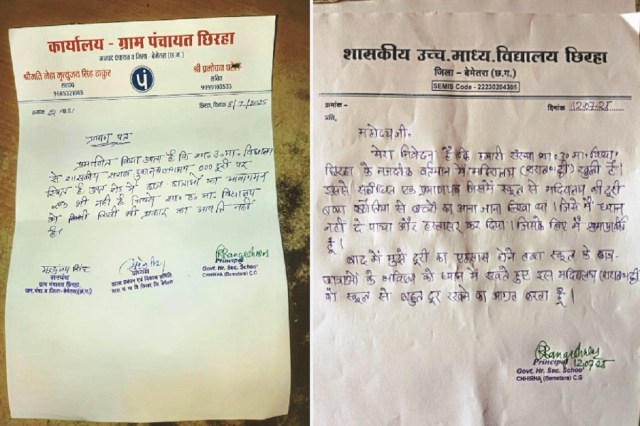 कार्यालय - ग्राम पंचायत छिरहा
जनपद पंचायत व जिला - बेमेतरा (छ.ग.)
श्रीमति नेहा मृत्युंजय सिंह ठाकुर
सरपंच
श्री प्रमोचन
सचिव
दिनांक 5/7/2025
प्रमाण पत्र
प्रमाणित किया जाता है कि शा० उ० मा० विद्यालय
से शासकीय शराब दुकान 600 दूरी पर
स्थित है
का आवागमन
भी नहीं है जिससे शा० उ० मा० विद्यालय
को किसी भी प्रकार का आपत्ति नहीं
है।
सरपंच
ग्राम पंचायत छिरहा
अध्यक्ष
Principal
Govt. Hr. Sec. School
CHHIRHA (Bemetara) C.G
शासकीय उच्च.माध्य.विद्यालय छिरहा
जिला - बेमेतरा (छ.ग.)
SEMIS Code - 22230204301
क्रमांक -
दिनांक 12.07.25
प्रति,
महोदय जी।
मेरा निवेदन है कि हमारी संस्था शा० उ० मा० विद्या.
छिरहा के नजदीक वर्तमान में मदिरालय (शराब भट्ठी) खुली है।
उससे संबंधित एक प्रमाणपत्र जिसमें स्कूल से मदिरालय की दूरी
तथा से बच्चों का आना जाना लिखा था। जिसे मैं ध्यान
नहीं दे पाया और हस्ताक्षर कर दिया। जिसके लिए मैं क्षमाप्रार्थी
हूँ।
बाद में मुझे दूरी का एहसास होने तथा स्कूल के छात्र-
छात्राओं के भविष्य को ध्यान में रखते हुए इस मदिरालय (शराब भट्ठी)
को स्कूल से बहुत दूर रखने का आग्रह करता हूँ।
Principal 12.07.25
Govt. Hr. Sec. School
CHHIRHA (Bemetara) C.G